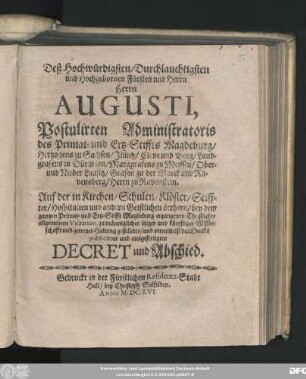 Deß Hochwürdigsten/Durchlauchtigsten
und Hochgebornen Fürsten und Herrn
Herrn
AUGUSTI,
Postulirten Administratoris
des Primat- und Ertz-Stiffts Magdeburg/
Hertzogens zu Sachsen/Jülich/Cleve und Berg/Land-
grafens in Düringen/Marggrafens zu Meissen/Ober-
und Nieder Lausitz/Grafen zu der Marck und Ra-
vensberg/Herrn zu Ravenstein.
Auf der in Kirchen/Schulen/Klöster/Stiff-
ter/Hospitalien und andern Geistlichen örthern/bey dem
gantzen Primat- und Ertz-Stifft Magdeburg ergangenen Christlichen
allgemeinen Visitation,
publicirtes und ausgefertigtes
DECRET und Abschied.
Gedruckt in der Fürstlichen Residentz-Stadt
Hall/ bey Christoph Salfelden.
ANNO M.DC.LVI.